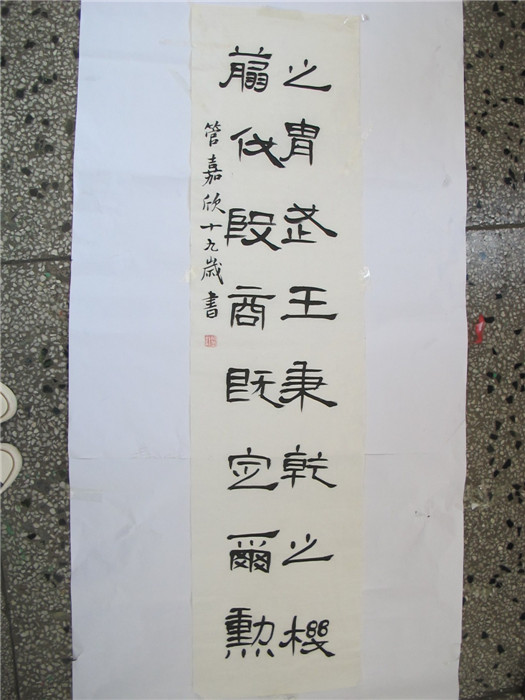 之胄武王秉乾之機
翦伐殷商既定爾勳
管嘉欣十九歲書